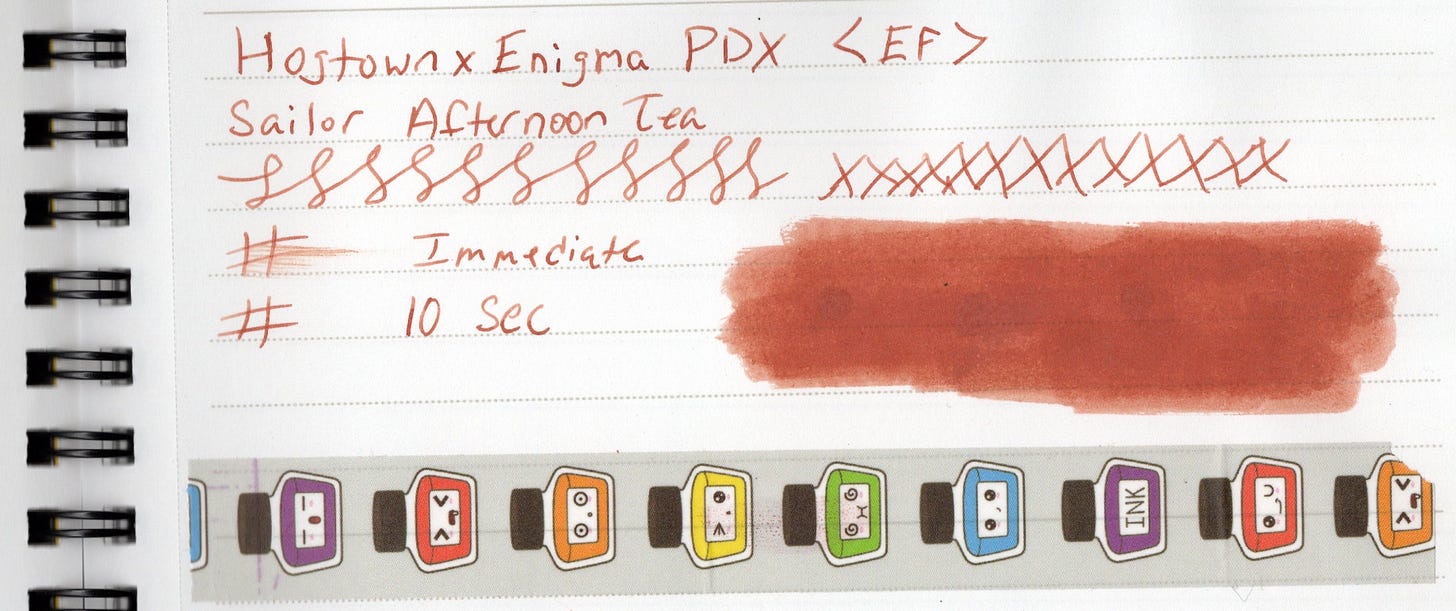 Hogtown x Enigma PDX <EF>
Sailor Afternoon Tea
# Immediate
# 10 Sec
INK